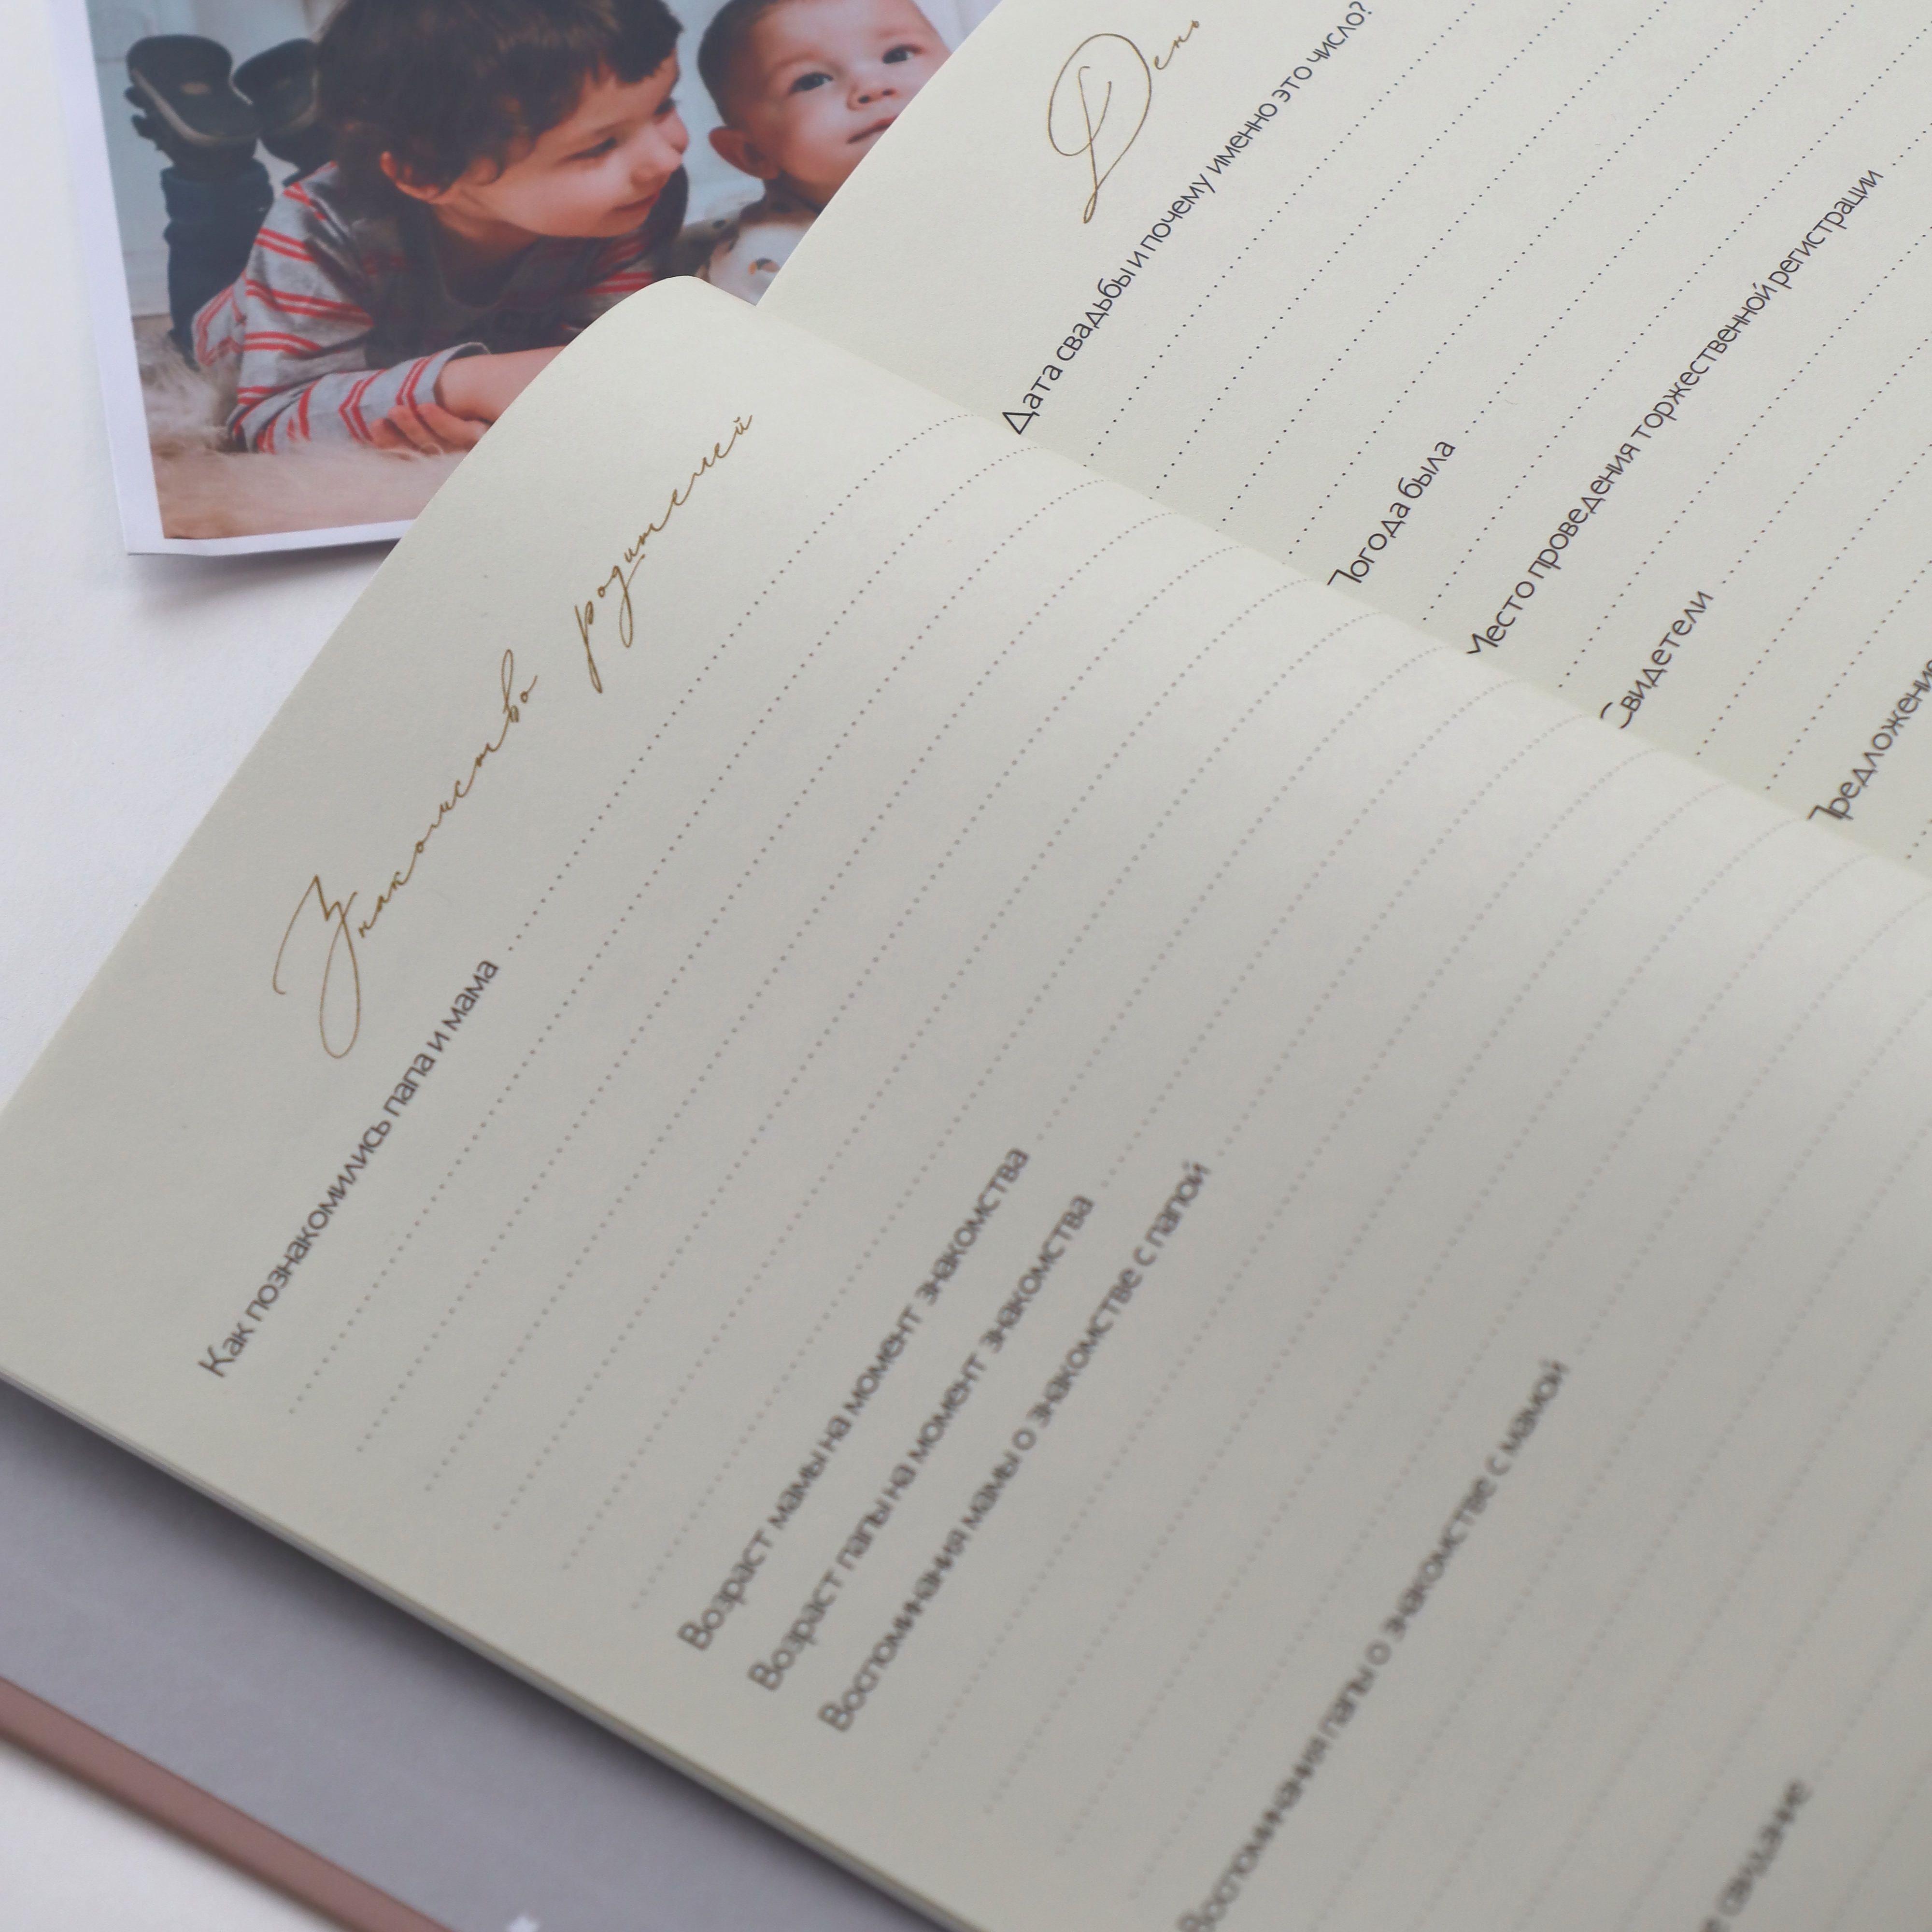 Знакомство родителей
Как познакомились папа и мама
Возраст мамы на момент знакомства
Возраст папы на момент знакомства
Воспоминания мамы о знакомстве с папой
Воспоминания папы о знакомстве с мамой
свидание
День
Дата свадьбы и почему именно это число?
Погода была
Место проведения торжественной регистрации
Свидетели